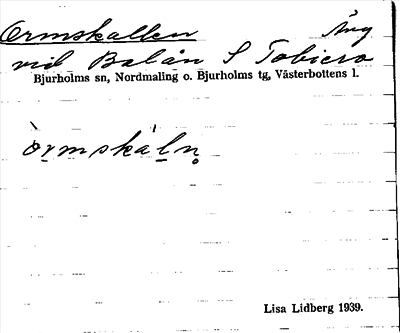 Ormskallen Äng
vid Balån S Tobiero
Bjurholms sn, Nordmaling o. Bjurholms tg, Västerbottens l.
òrmskáln̥
Lisa Lidberg 1939.